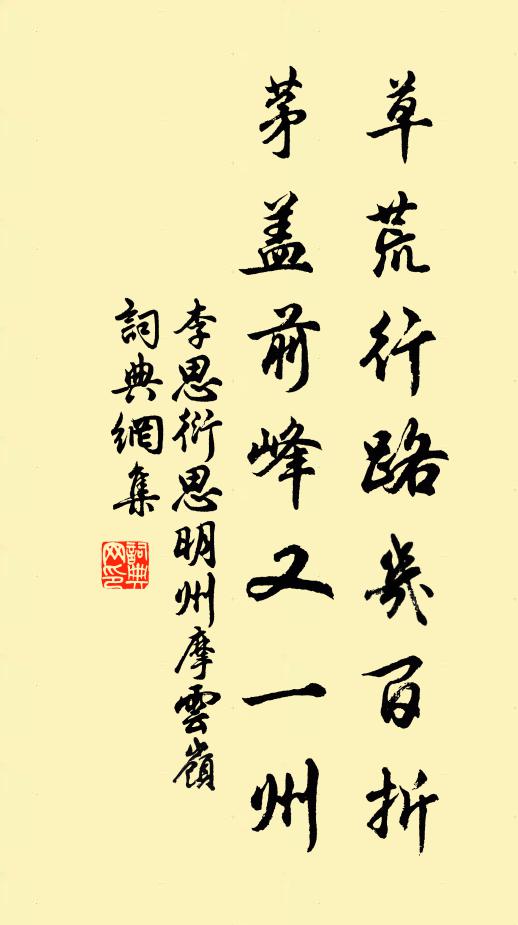 草荒行路幾百折
茅盖前峰又一州
李思衍思明州摩雲嶺
詞典網集
詞典网印